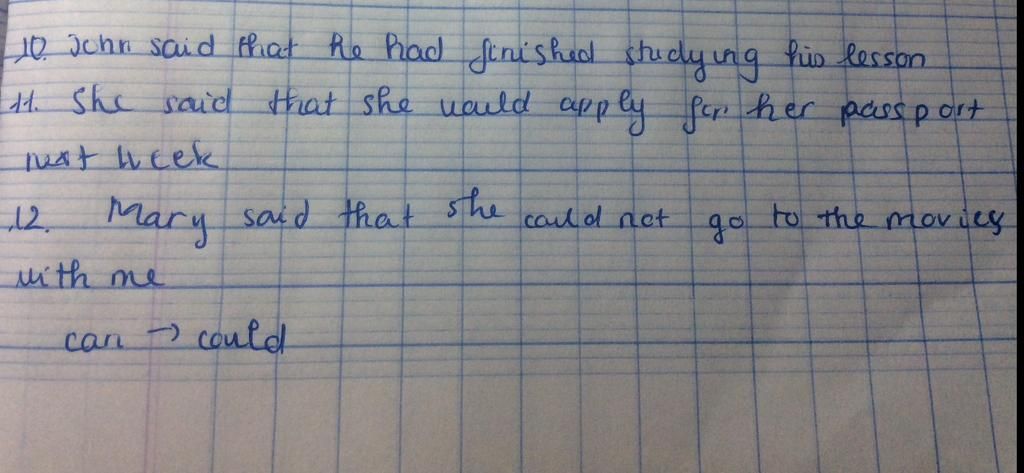 10. John said that he had finished studying his lesson
11. She said that she would apply for her passport
next week
12. Mary said that she could not go to the movies
with me
can → could